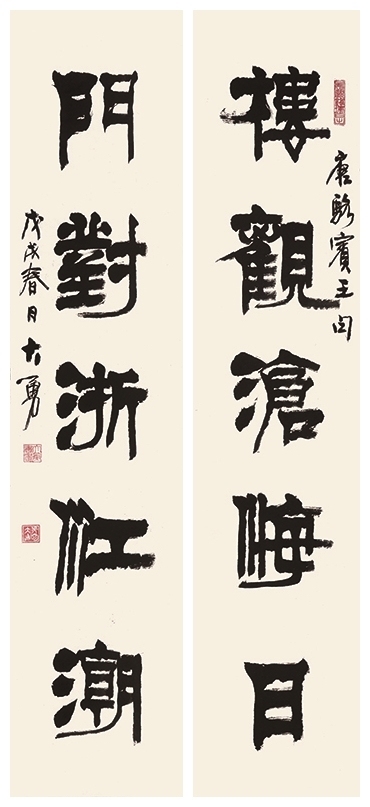 唐駱賓王句
樓觀滄海日
門對浙江潮
戊戌春日大勇